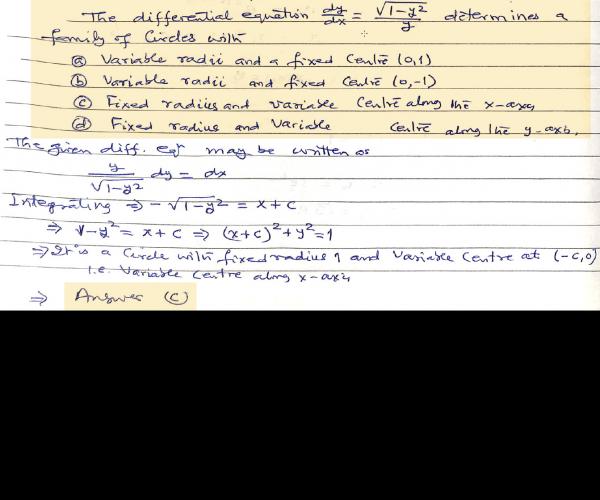 The differential equation dy/dx = √(1-y²)/y determines a
family of Circles with
(a) Variable radii and a fixed Centre (0,1)
(b) Variable radii and fixed Centre (0,-1)
(c) Fixed radius and variable Centre along the x-axis
(d) Fixed radius and Variable Centre along the y-axis.
The given diff. eqn may be written as
y/√(1-y²) dy = dx
Integrating ⇒ -√(1-y²) = x+c
⇒ 1-y² = x+c ⇒ (x+c)²+y²=1
⇒ It is a Circle with fixed radius 1 and Variable Centre at (-c,0)
i.e. Variable Centre along x-axis
⇒ Answer (c)